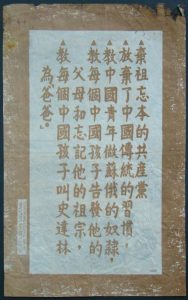 ▲棄祖忘本的共產黨
放棄了中國傳統的習慣，
▲教中國青年做蘇俄的奴隸，
▲教每個中國孩子告發他的
父母和忘記他的祖宗，
▲教每個中國孩子叫史達林
為爸爸。